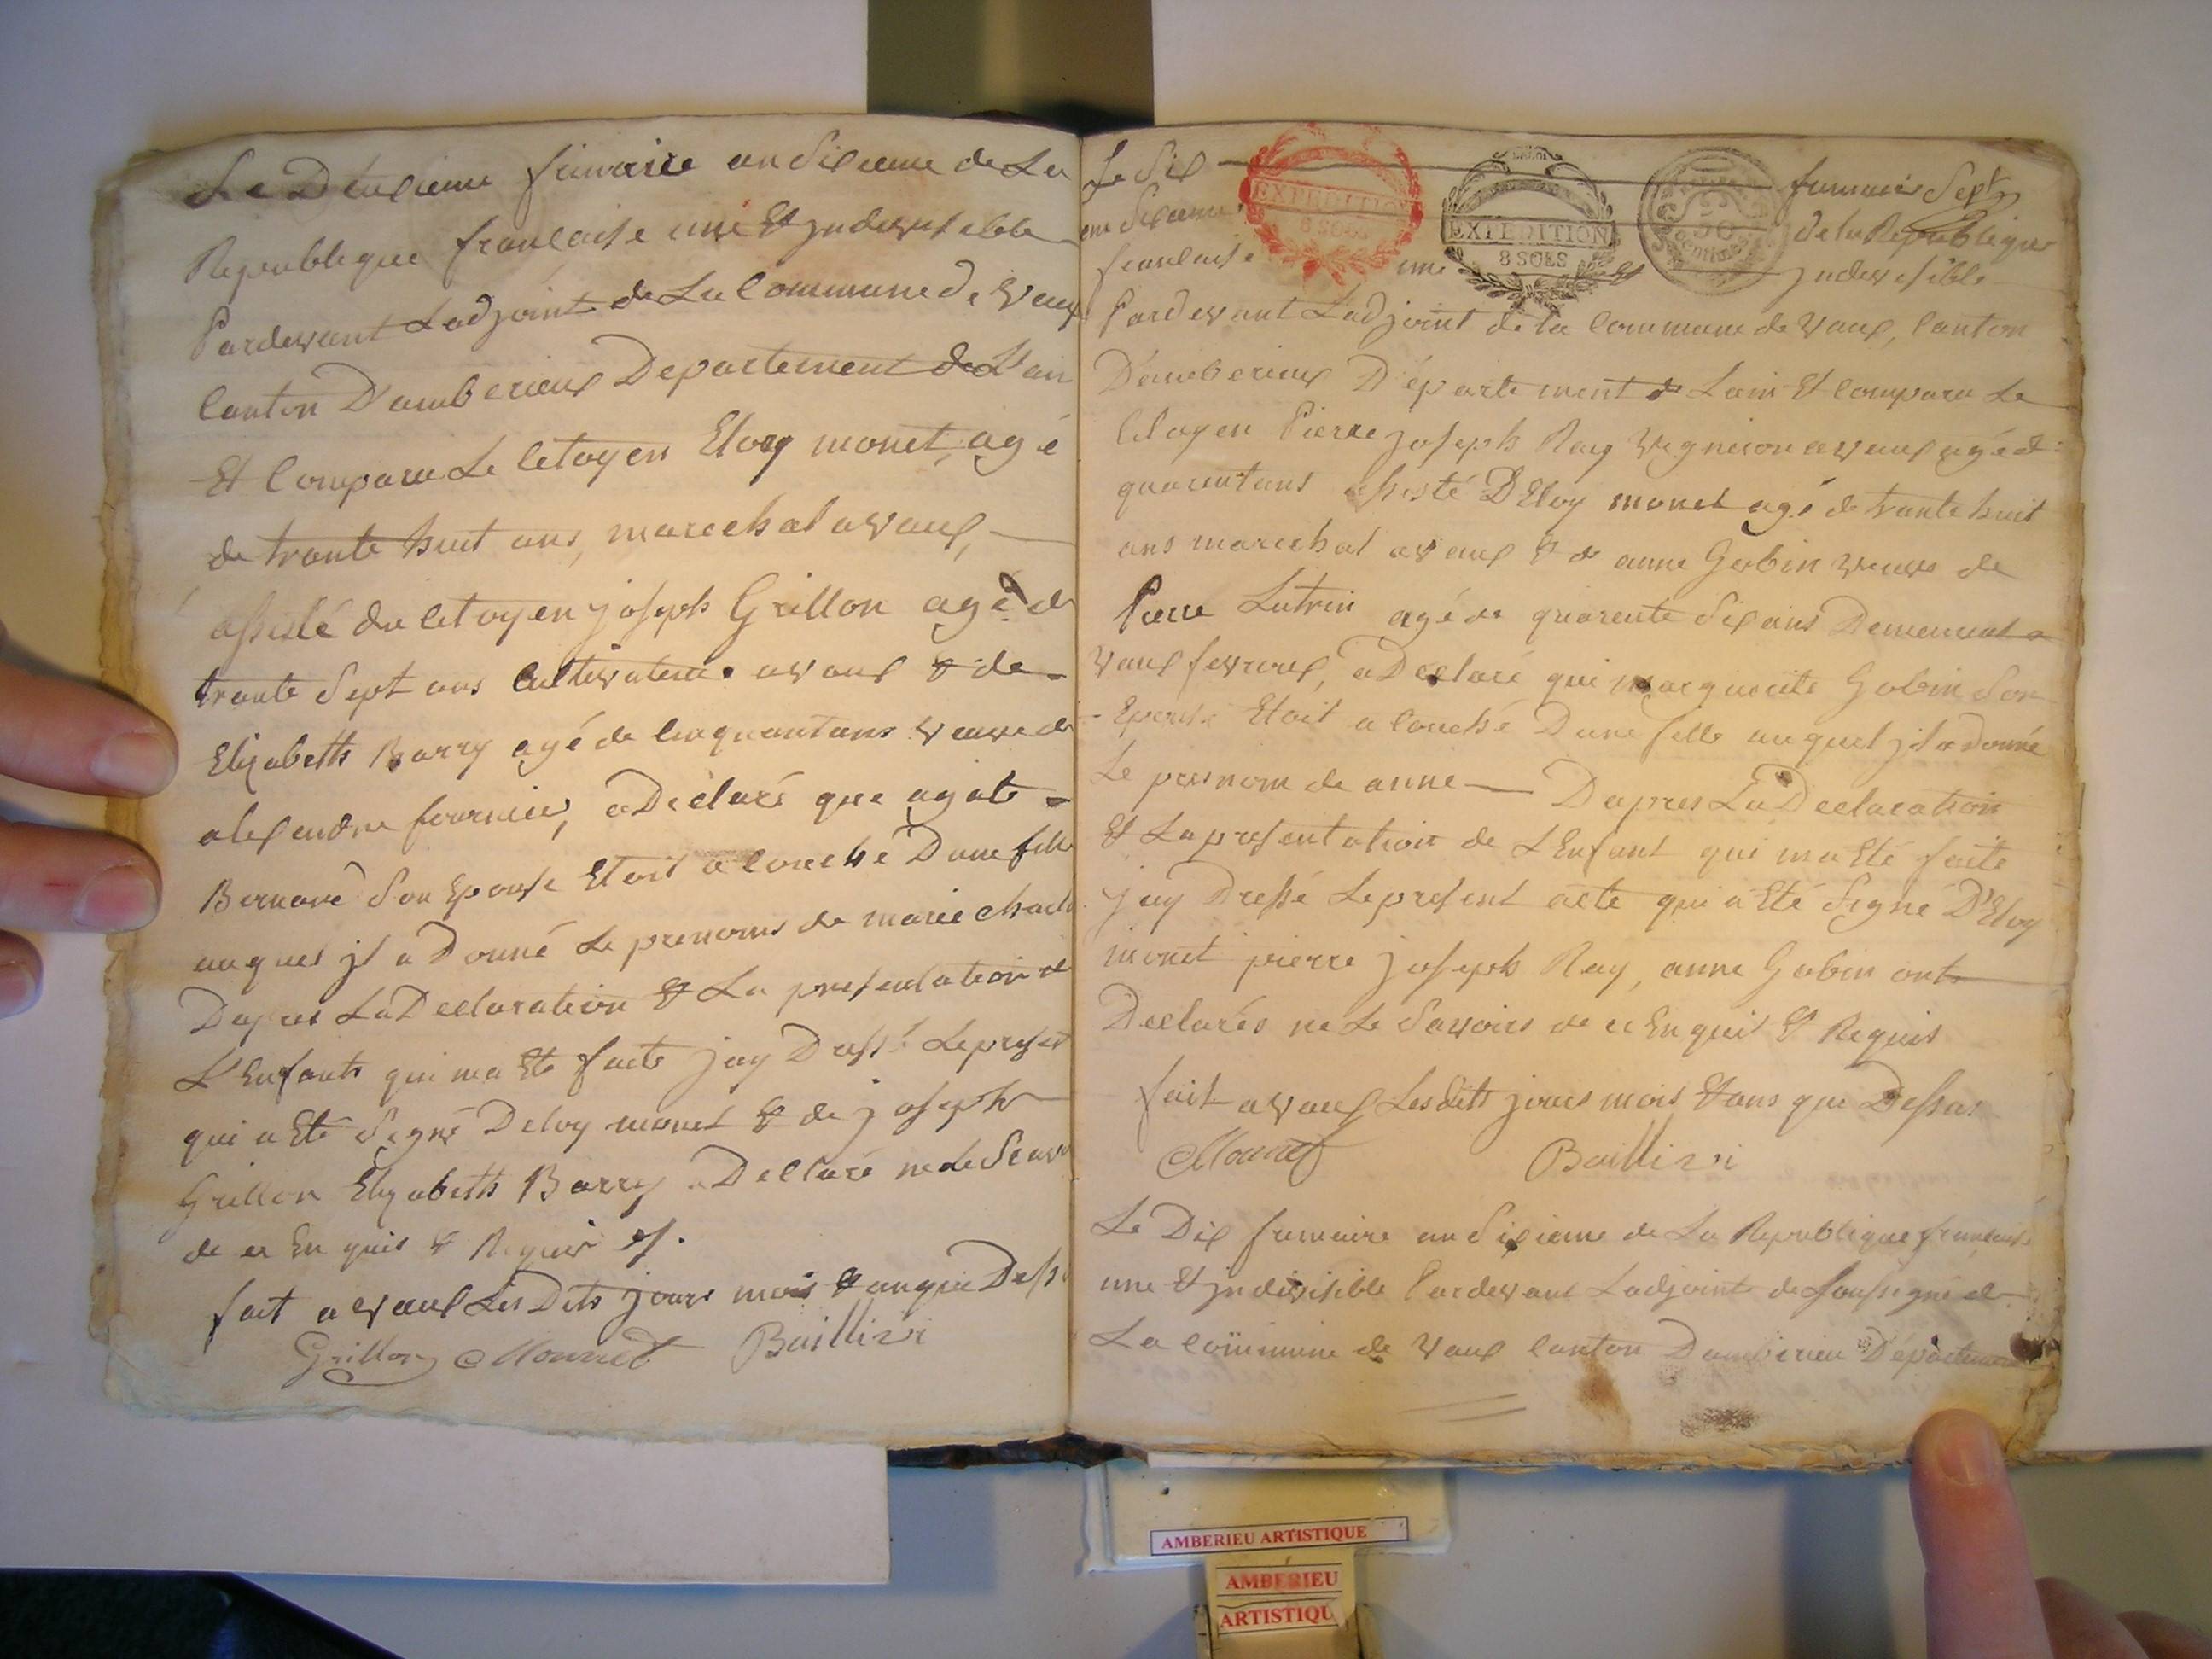 Le Deuxieme frimaire an Sixieme de La
Republique francaise une Et jndivisible
Pardevant Ladjoint de La Commune de vaux
Canton D'amberieux Departement de L'ain
Et Comparu Le Citoyen Eloy monet, agé
de trante huit ans, marechal a vaux,
assisté du Citoyen joseph Grillon agé de
trante Sept ans Cultivateur a vaux & de
Elizabeth Barry agé de Cinquantans veuve de
alexandre fournier, a Déclaré que agate
Bernard Son Epouse Etoit acouché D'une fille
auquel jl a Donné Le prenoms de marie
Dapres La Declaration & La presentation de
L'Enfants qui ma Eté faite jay Dressé Le present
qui a Eté Signé Deloy monet & de joseph
Grillon Elizabeth Barry a Declaré ne Le Scavoir
de ce Enquis & Requis
fait a vaux Les Dits jours mois & an que Dessus
Grillon Monnet Baillivi
Le Six frimaire Sept
an Sixieme de la Republique
francaise une & jndivisible
EXPEDITION
8 SOLS
EXPEDITION
8 SOLS
50
Centimes
Pardevant L'adjoint de la Commune de vaux, Canton
D'amberieux Département de Lain & Comparu Le
Citoyen Pierre joseph Ray vigneron a vaux agé de
quarentans assisté D'Eloy monet agé de trante huit
ans marechal a vaux & de anne Gobin veuve de
Pierre Lutrin agé de quarente Six ans Demeurant a
vaux fevroux, a Déclaré que marguerite Gobin Son
Epouse Etoit acouché D'une fille auquel jl a Donné
Le presnom de anne Dapres La Declaration
& La presentation de L'Enfant qui ma Eté faite
jay Dressé Le present acte qui a Eté Signé D'Eloy
monet pierre joseph Ray, anne Gobin ont
Declarés ne Le Savoirs de ce Enquis & Requis
fait a vaux Lesdits jours mois & ans que Dessus
Monnet Baillivi
Le Dix frimaire an Sixieme de La Republique francaise
une & jndivisible Pardevant Ladjoint de Soussigné de
La commune de vaux Canton Damberieu Département
AMBERIEU ARTISTIQUE
AMBÉRIEU
ARTISTIQU